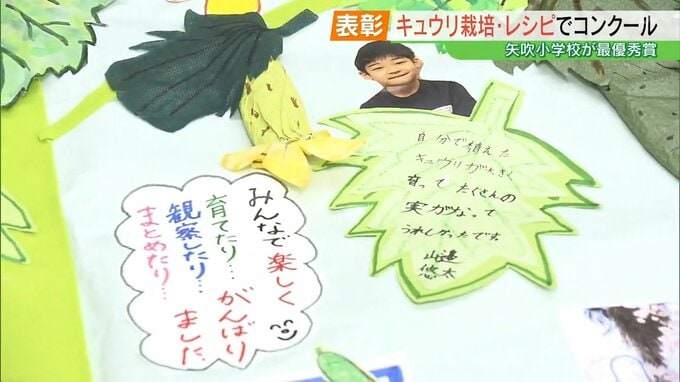 表彰 キュウリ栽培・レシピでコンクール
矢吹小学校が最優秀賞
自分で植えた
キュウリが大きく
育って たくさんの
実がなって
うれしかったです。
山邉
悠太
みんなで楽しく
育てたり…
観察したり…
まとめたり…
がんばり
ました